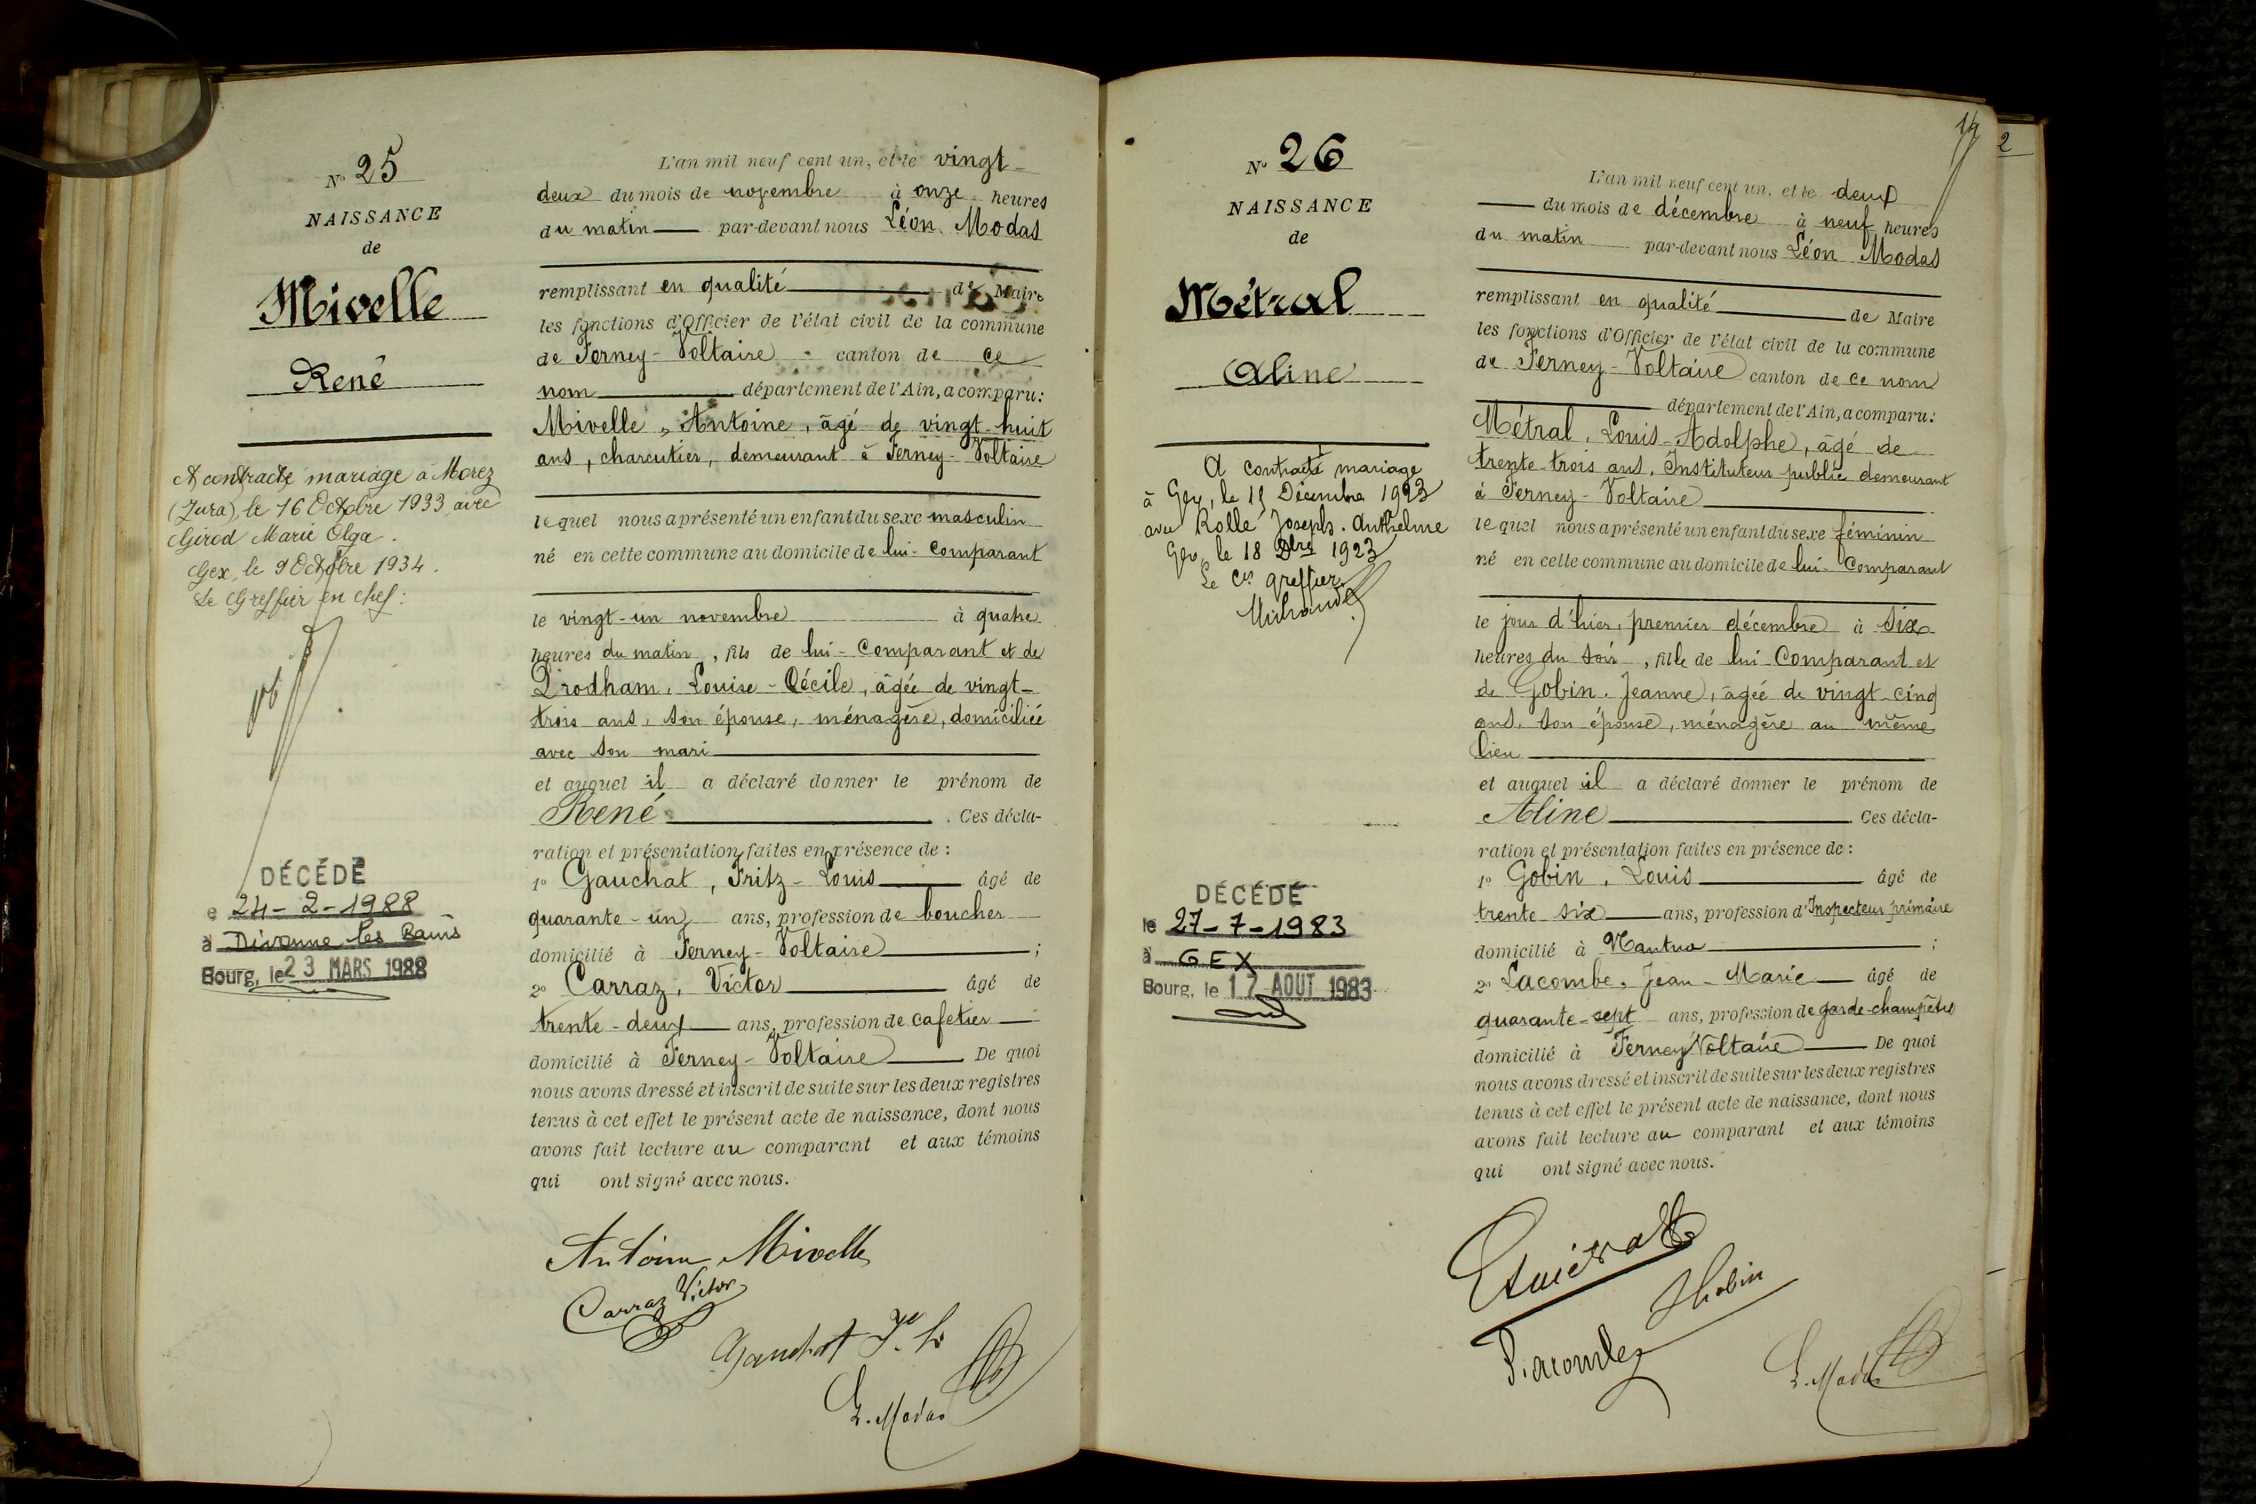 N° 25
NAISSANCE
de
Mivelle
René
A contracté mariage à Morez
(Jura), le 16 Octobre 1933 avec
Girod Marie Olga.
Gex, le 9 Octobre 1934.
Le Greffier en chef:
DÉCÉDÉ
e 24-2-1988
à Divonne les Bains
Bourg, le 23 MARS 1988
L'an mil neuf cent un, et le vingt-
deux du mois de novembre à onze heures
du matin par-devant nous Léon Modas
remplissant en qualité de Maire
les fonctions d'Officier de l'état civil de la commune
de Ferney-Voltaire canton de ce
nom département de l'Ain, a comparu:
Mivelle, Antoine, âgé de vingt-huit
ans, charcutier, demeurant à Ferney-Voltaire
lequel nous a présenté un enfant du sexe masculin
né en cette commune au domicile de lui-Comparant
le vingt-un novembre à quatre
heures du matin, fils de lui-Comparant et de
Prodham, Louise-Cécile, âgée de vingt-
trois ans, son épouse, ménagère, domiciliée
avec son mari
et auquel il a déclaré donner le prénom de
René. Ces décla-
ration et présentation faites en présence de:
1° Gauchat, Fritz-Louis âgé de
quarante-un ans, profession de boucher
domicilié à Ferney-Voltaire;
2° Carraz, Victor âgé de
trente-deux ans, profession de cafetier
domicilié à Ferney-Voltaire De quoi
nous avons dressé et inscrit de suite sur les deux registres
tenus à cet effet le présent acte de naissance, dont nous
avons fait lecture au comparant et aux témoins
qui ont signé avec nous.
Antoine Mivelle
Carraz Victor
Gauchat F. L.
L. Modas
2
N° 26
NAISSANCE
de
Métral
Aline
A contracté mariage
à Gex, le 15 Décembre 1923
avec Rolle Joseph. Anthelme
Gex, le 18 Xbre 1923
Le Cis greffier
DÉCÉDÉ
le 27-7-1983
à GEX
Bourg, le 17 AOUT 1983
L'an mil neuf cent un, et le deux
du mois de décembre à neuf heures
du matin par-devant nous Léon Modas
remplissant en qualité de Maire
les fonctions d'Officier de l'état civil de la commune
de Ferney-Voltaire canton de ce nom
département de l'Ain, a comparu:
Métral, Louis-Adolphe, âgé de
trente-trois ans, Instituteur public demeurant
à Ferney-Voltaire
lequel nous a présenté un enfant du sexe féminin
né en cette commune au domicile de lui-Comparant
le jour d'hier, premier décembre à six
heures du soir, fille de lui-Comparant et
de Gobin, Jeanne, âgée de vingt-cinq
ans, son épouse, ménagère au même
lieu
et auquel il a déclaré donner le prénom de
Aline Ces décla-
ration et présentation faites en présence de:
1° Gobin, Louis âgé de
trente-six ans, profession d'Inspecteur primaire
domicilié à Nantua;
2° Lacombe, Jean-Marie âgé de
quarante-sept ans, profession de garde-champêtre
domicilié à Ferney Voltaire De quoi
nous avons dressé et inscrit de suite sur les deux registres
tenus à cet effet le présent acte de naissance, dont nous
avons fait lecture au comparant et aux témoins
qui ont signé avec nous.
L. Modas